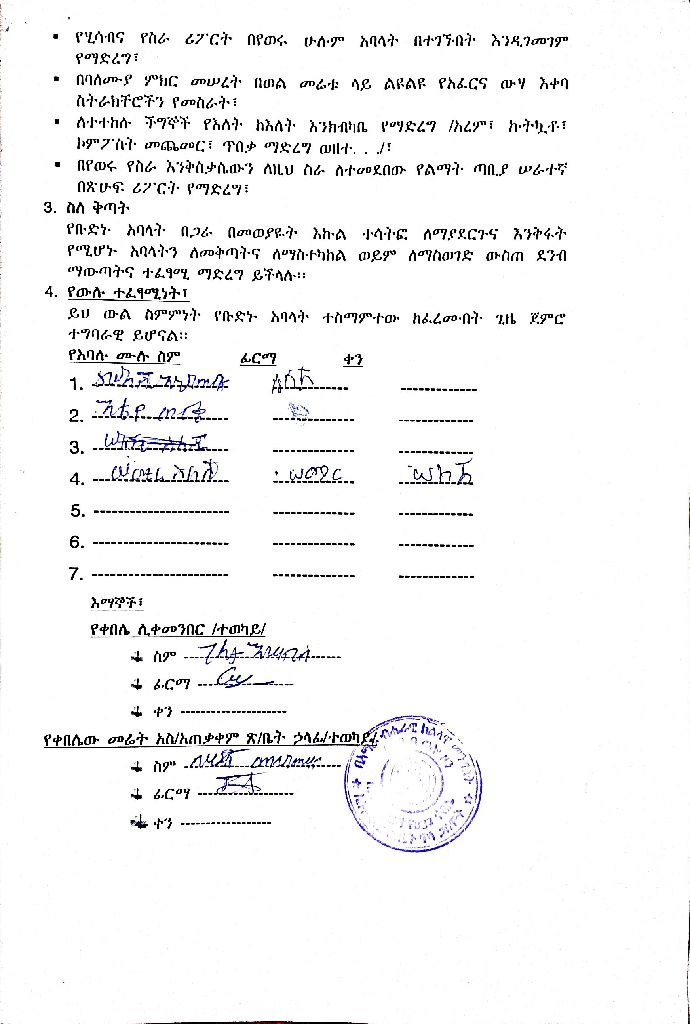 ▪ የሂሳብና የስራ ሪፖርት በየወሩ ሁሉም አባላት በተገኙበት እንዲገመገም
የማድረግ፣
▪ በባለሙያ ምክር መሠረት በወል መሬቱ ላይ ልዩልዩ የአፈርና ውሃ እቀባ
ስትራክቸሮችን የመስራት፣
▪ ለተተከሉ ችግኞች የእለት ከእለት እንክብካቤ የማድረግ /አረም፣ ኩትኳቶ፣
ኮምፖስት መጨመር፣ ጥበቃ ማድረግ ወዘተ. . ./፣
▪ በየወሩ የስራ እንቅስቃሴውን ለዚህ ስራ ለተመደበው የልማት ጣቢያ ሠራተኛ
በጽሁፍ ሪፖርት የማድረግ፣
3. ስለ ቅጣት
የቡድኑ አባላት በጋራ በመወያየት እኩል ተሳትፎ ለማያደርጉና እንቅፋት
የሚሆኑ አባላትን ለመቅጣትና ለማስተካከል ወይም ለማስወገድ ውስጠ ደንብ
ማውጣትና ተፈፃሚ ማድረግ ይችላሉ፡፡
4. የውሉ ተፈፃሚነት፣
ይህ ውል ስምምነት የቡድኑ አባላት ተስማምተው ከፈረሙበት ጊዜ ጀምሮ
ተግባራዊ ይሆናል፡፡
የአባሉ ሙሉ ስም ፊርማ ቀን
1.
2.
3.
4.
5.
6.
7.
እማኞች፣
የቀበሌ ሊቀመንበር /ተወካይ/
ስም
ፊርማ
ቀን
የቀበሌው መሬት አስ/አጠቃቀም ጽ/ቤት ኃላፊ/ተወካይ/
ስም
ፊርማ
ቀን